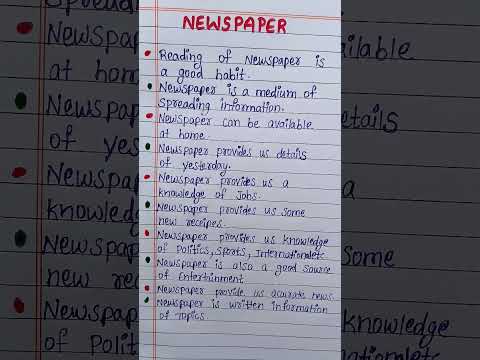 NEWSPAPER
Reading of Newspaper is
a good habit.
Newspaper is a medium of
Spreading information.
Newspaper can be available
at home
Newspaper provides us details
of yesterday.
Newspaper provides us a
knowledge of Jobs.
Newspaper provides us some
new receipes.
Newspaper provides us knowledge
of Politics, Sports, International etc
Newspaper is also a good source
of Entertainment
Newspaper provide us acurate news.
Newspaper is written information
of Topics